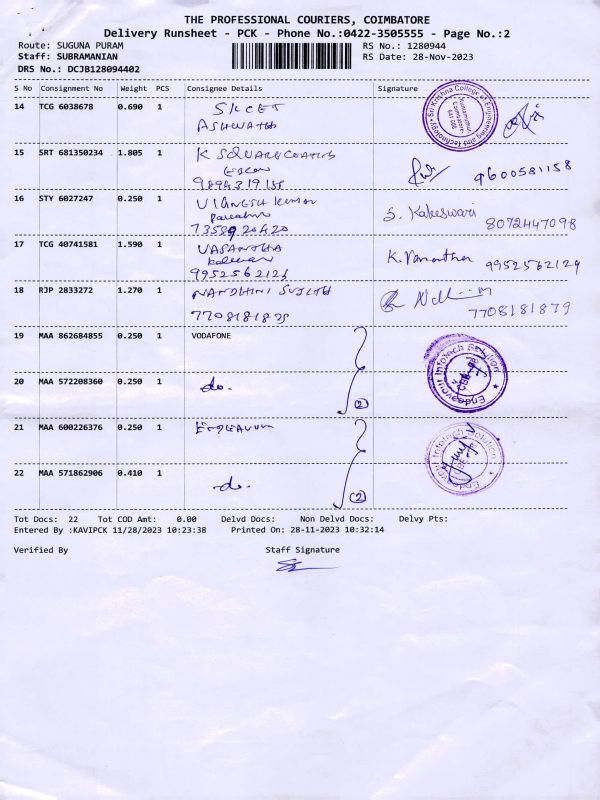 THE PROFESSIONAL COURIERS, COIMBATORE
Delivery Runsheet - PCK - Phone No.:0422-3505555 - Page No.:2
Route: SUGUNA PURAM RS No.: 1280944
Staff: SUBRAMANIAN RS Date: 28-Nov-2023
DRS No.: DCJB128094402
S No Consignment No Weight PCS Consignee Details Signature
14 TCG 6038678 0.690 1 SKCET
ASHWATH
Sri Krishna College of Engineering and Technology
Kuniamuthur
Coimbatore
641 008
15 SRT 681350234 1.805 1 K SQUARE
9600581158
16 STY 6027247 0.250 1 VIGNESH Kumar
S. Kaleswari 8072447098
7358920420
17 TCG 40741581 1.590 1 VASANTHA
K. Vasantha 9952562124
18 RJP 2833272 1.270 1 NANDHINI SUJITH
7708181879
19 MAA 862684855 0.250 1 VODAFONE
Endeavour Infotech Solution
CBE
20 MAA 572208360 0.250 1 do. (2)
21 MAA 600226376 0.250 1 Endeavour
Endeavour Infotech Solution
CBE
22 MAA 571862906 0.410 1 do. (2)
Tot Docs: 22 Tot COD Amt: 0.00 Delvd Docs: Non Delvd Docs: Delvy Pts:
Entered By :KAVIPCK 11/28/2023 10:23:38 Printed On: 28-11-2023 10:32:14
Verified By Staff Signature